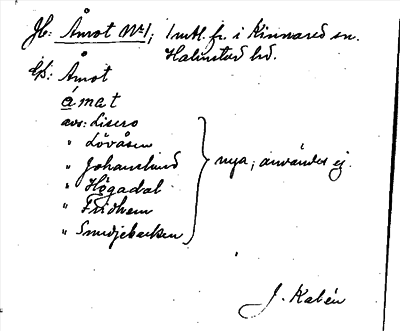 Jb: Åmot No 1; 1 mtl. fr. i Kinnared sn.
Halmstad hd.
Ep: Åmot
ámat
avs: Lisero
" Lövåsen
" Johanslund
" Högadal
" Fridhem
" Smedjebacken
nya; användes ej.
J. Kalén